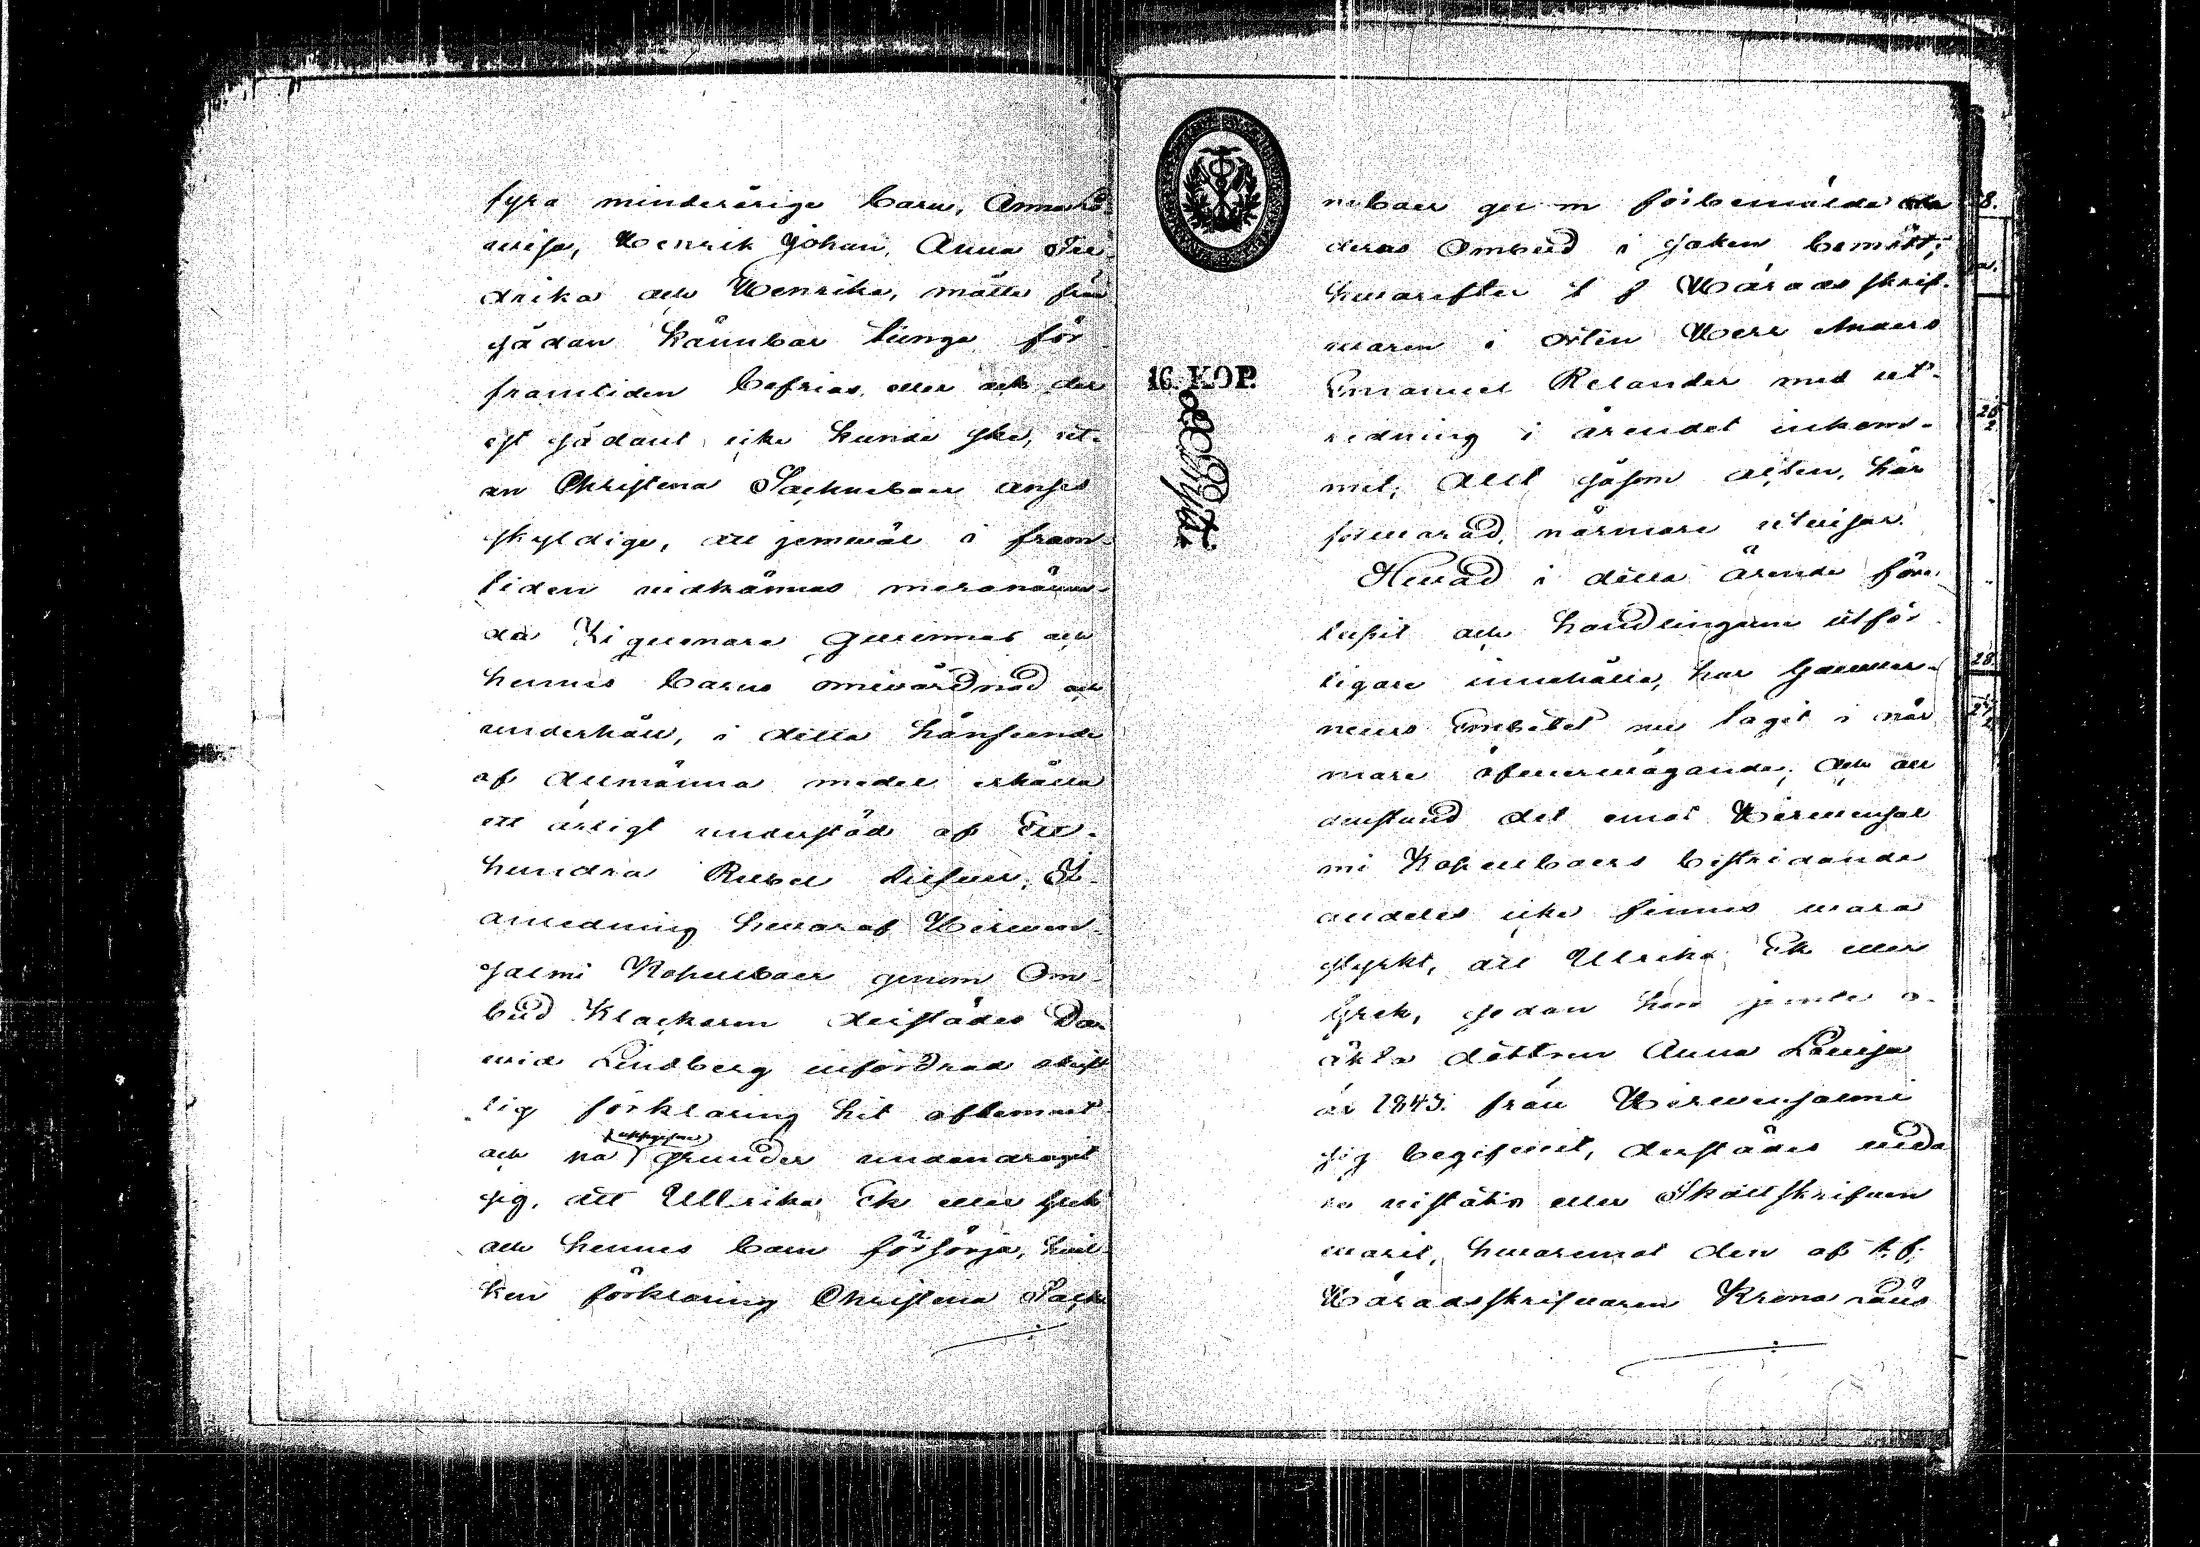 fyra minderåriga barn, Anna Lo-
wisa, Henrik Johan, Anna Fre-
drika och Henrika, måtte från
sådan kännbar tunga för
framtiden befrias eller och der
est sådant icke kunde ske, ut-
an Christina Sockneboer anses
skyldige, att jemwäl i fram-
tiden widkännas meranämn-
da Ziguenare qwinnas och
hennes barns omwårdnad och
underhåll, i detta hänseende
af Allmänna medel erhålla
ett årligt understöd af Ett
hundra Rubel Silfwer; I
anledning hwaraf Hirwen-
salmi Kapellboer genom Om-
bud Klockaren derstädes Da-
wid Lindberg infordrad skrift
lig förklaring hit aflemnat
och på uppgifne grunder undandragit
sig, att Ullrika Ek eller Grek
och hennes barn försörja, hwil-
ken förklaring Christina Sock
neboer genom förbemälde
deras Ombud i saken bemött;
hwarefter t f Häradsskrif-
waren i orten Herr Anders
Emanuel Relander med ut-
redning i ärendet inkom-
mit; Allt såsom akten, här
förwarad, närmare utwisar.
Hwad i detta ärende före-
lupit och handlingarne utför-
ligare innehålla, har Gouver-
neurs Embetet nu tagit i när
mare öfwerwägande; och all
denstund det emot Hirwensal
mi Kapellboers bestridande
andeles icke finnes wara
styrkt, att Ulrika Ek eller
Grek, sedan hon jemte o-
äkta dottren Anna Lowisa
år 1843 från Hirwensalmi
sig begifwit, derstädes wida
re wistats eller Skattskrifwen
warit, hwaremot den af t. f.
Häradsskrifwaren Krono Läns
16. KOP.